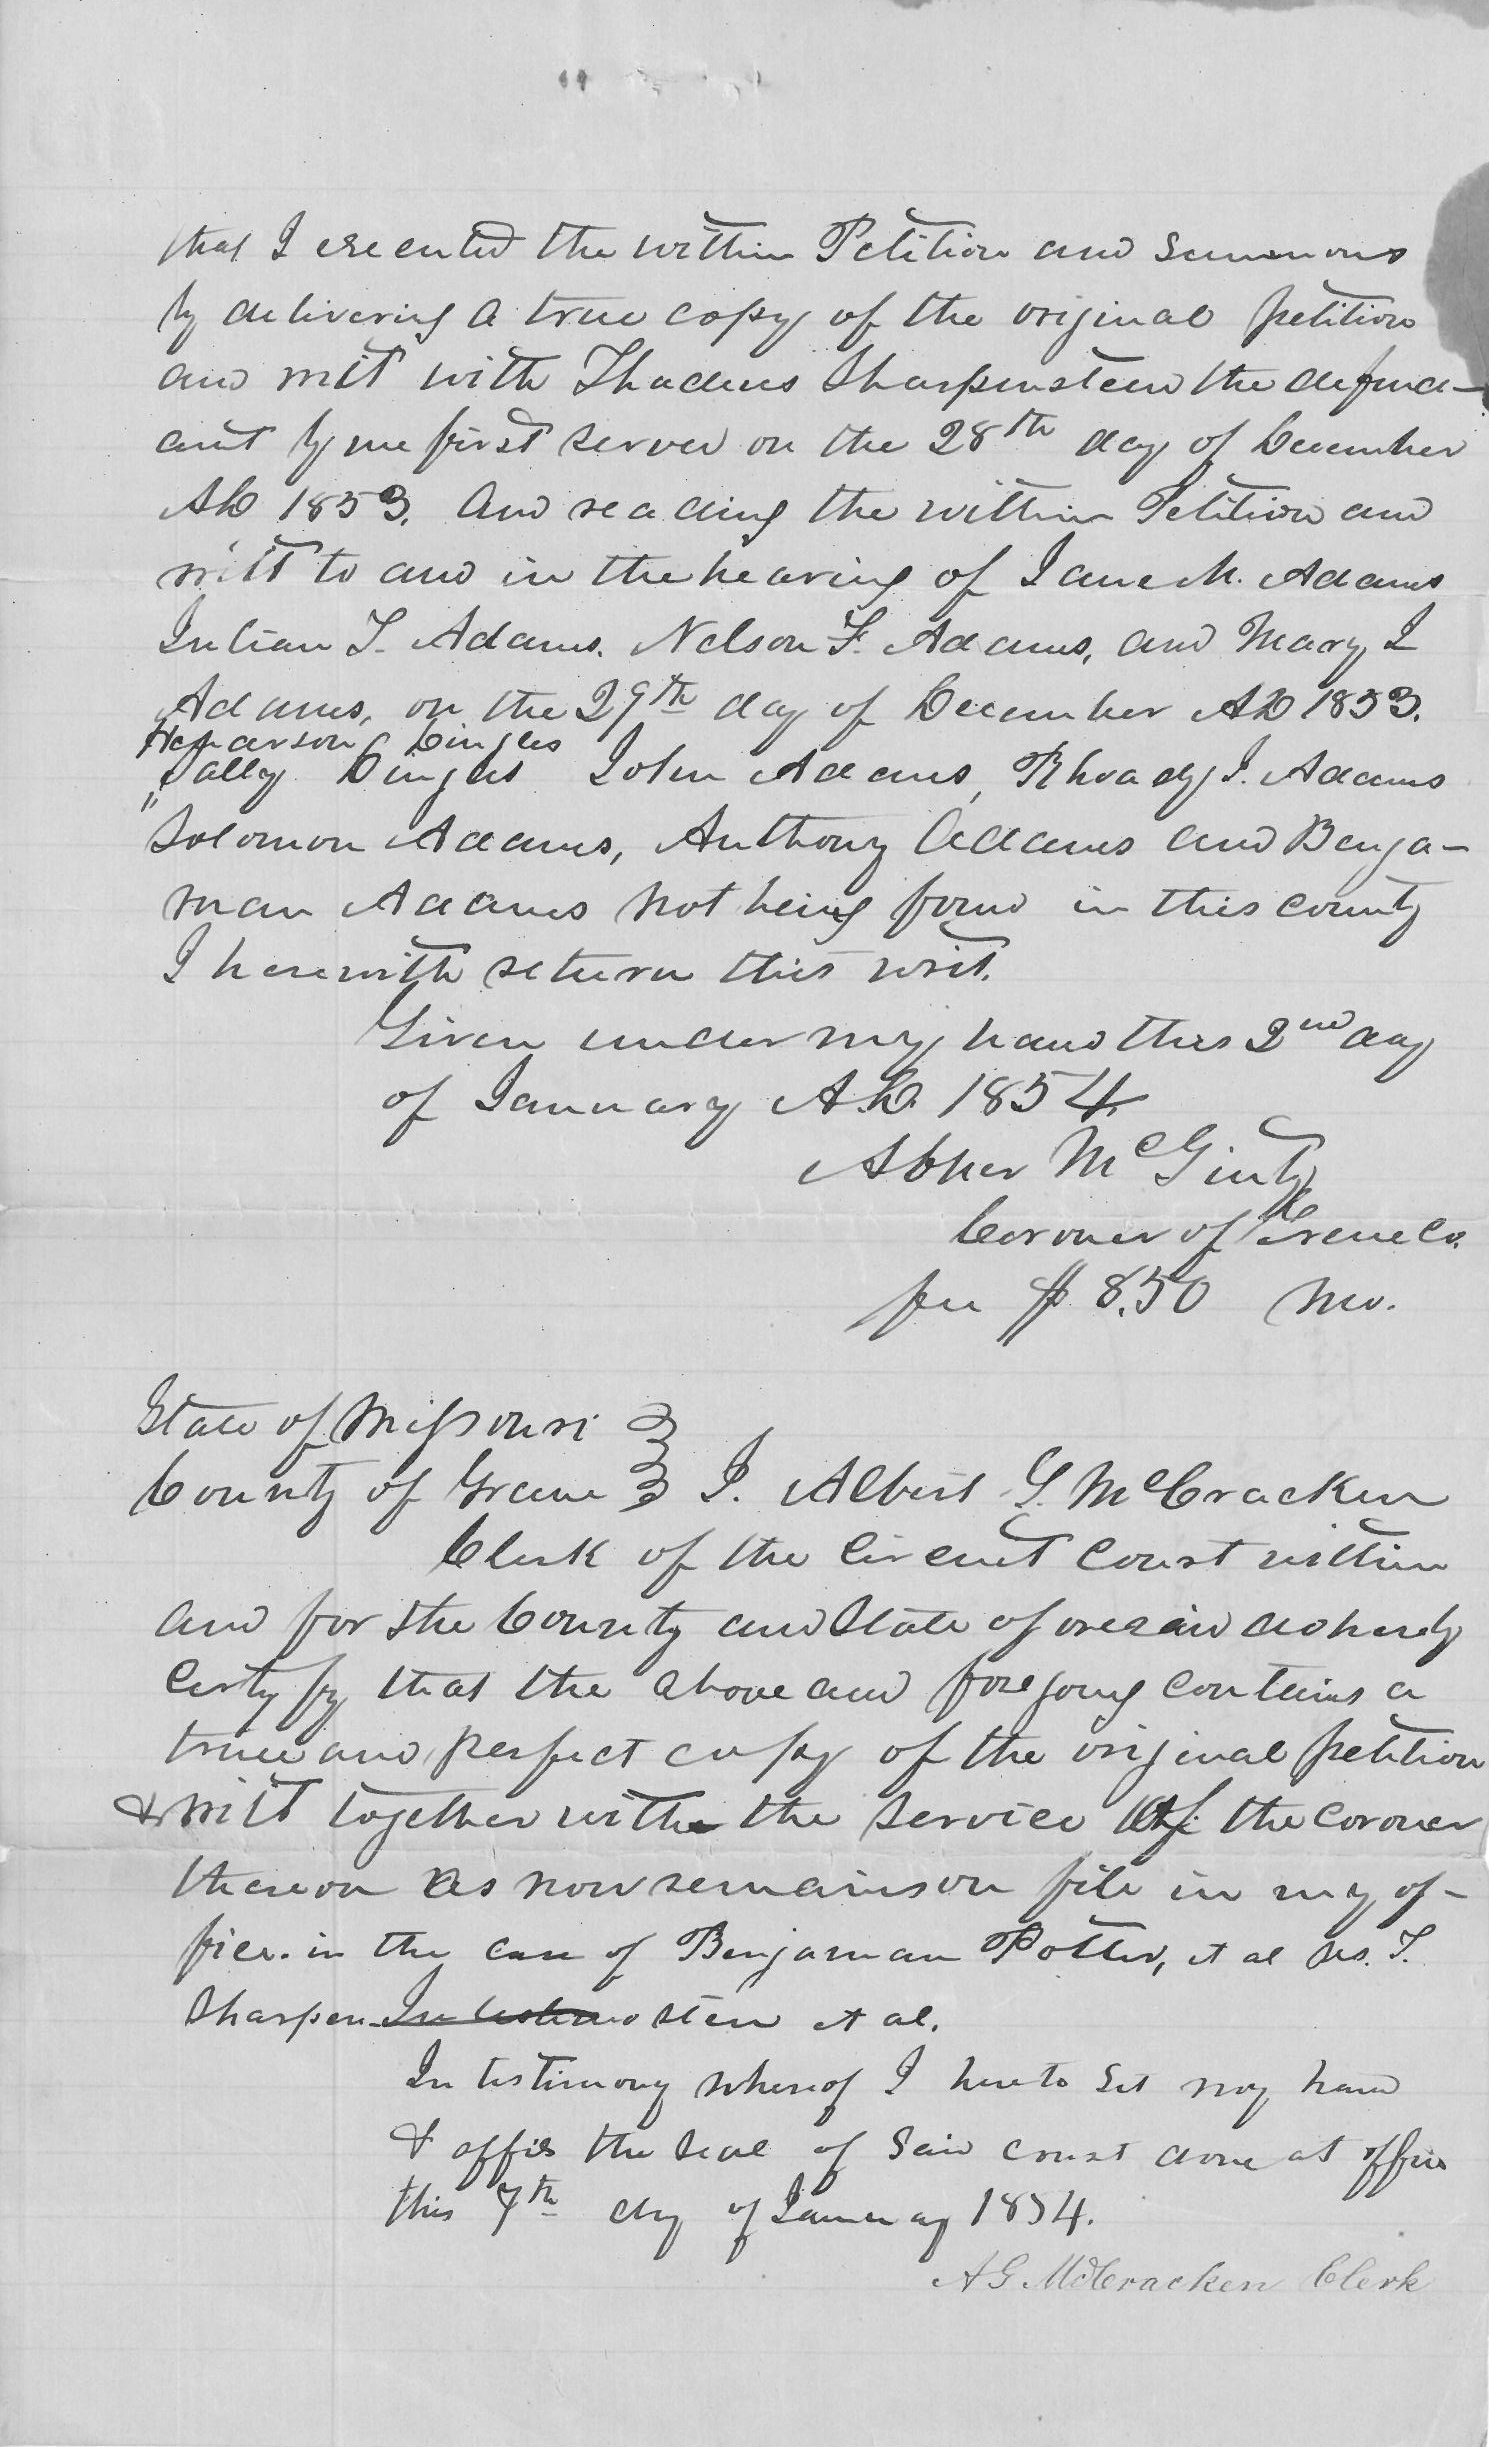 that I executed the within Petition and summons
by delivering a true copy of the original petition
and writ with Thadeus Sharpensteen the defend-
ant by me first served on the 28th day of December
AD 1853. And reading the within Petition and
writt to and in the hearing of Jane M. Adams
Julian T. Adams. Nelson F. Adams, and Mary J
Adams, on the 29th day of December AD 1853.
Dingles
Sally Dingles John Adams, Rhoady J. Adams
Solomon Adams, Anthony Adams and Benja-
man Adams not being found in this county
I herewith return this writ.
Given under my hand this 2nd day
of January A.D. 1854
Abner McGinty
Coroner of Greene Co.
fee $ 8.50 Mo.
State of Missouri
County of Greene I. Albert G. McCracken
Clerk of the Circuit Court within
and for the County and State aforesaid do hereby
Certyfy that the above and foregoing contains a
true and perfect copy of the original petition
& writt together with the service of the coroner
thereon as now remains on file in my of-
fice. in the case of Benjaman Potter, et al vs. T.
Sharpen steen et al.
In testimony whereof I hereto set my hand
& affix the seal of said court done at office
this 7th day of January 1854.
A G McCracken Clerk